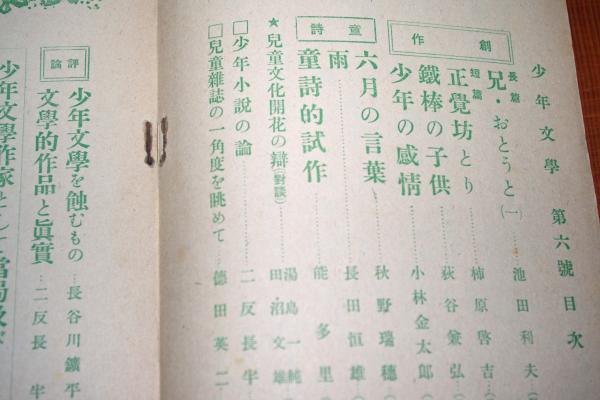 少年文學 第六號目次
創作
長篇 兄・おとうと(一) 池田利夫
短篇 正覺坊とり 柿原啓吉
鐵棒の子供 荻谷兼弘
少年の感情 小林金太郎
童詩
六月の言葉 秋野瑞穗
雨 長田恒雄
童詩的試作 能多里
★兒童文化開花の辯(對談) 湯島一純 田沼文雄
□少年小説の論 二反長半
□兒童雜誌の一角度を眺めて 德田英二
評論
少年文學を蝕むもの 長谷川鑛平
文學的作品と眞實 二反長半
少年文學作家として當局及び